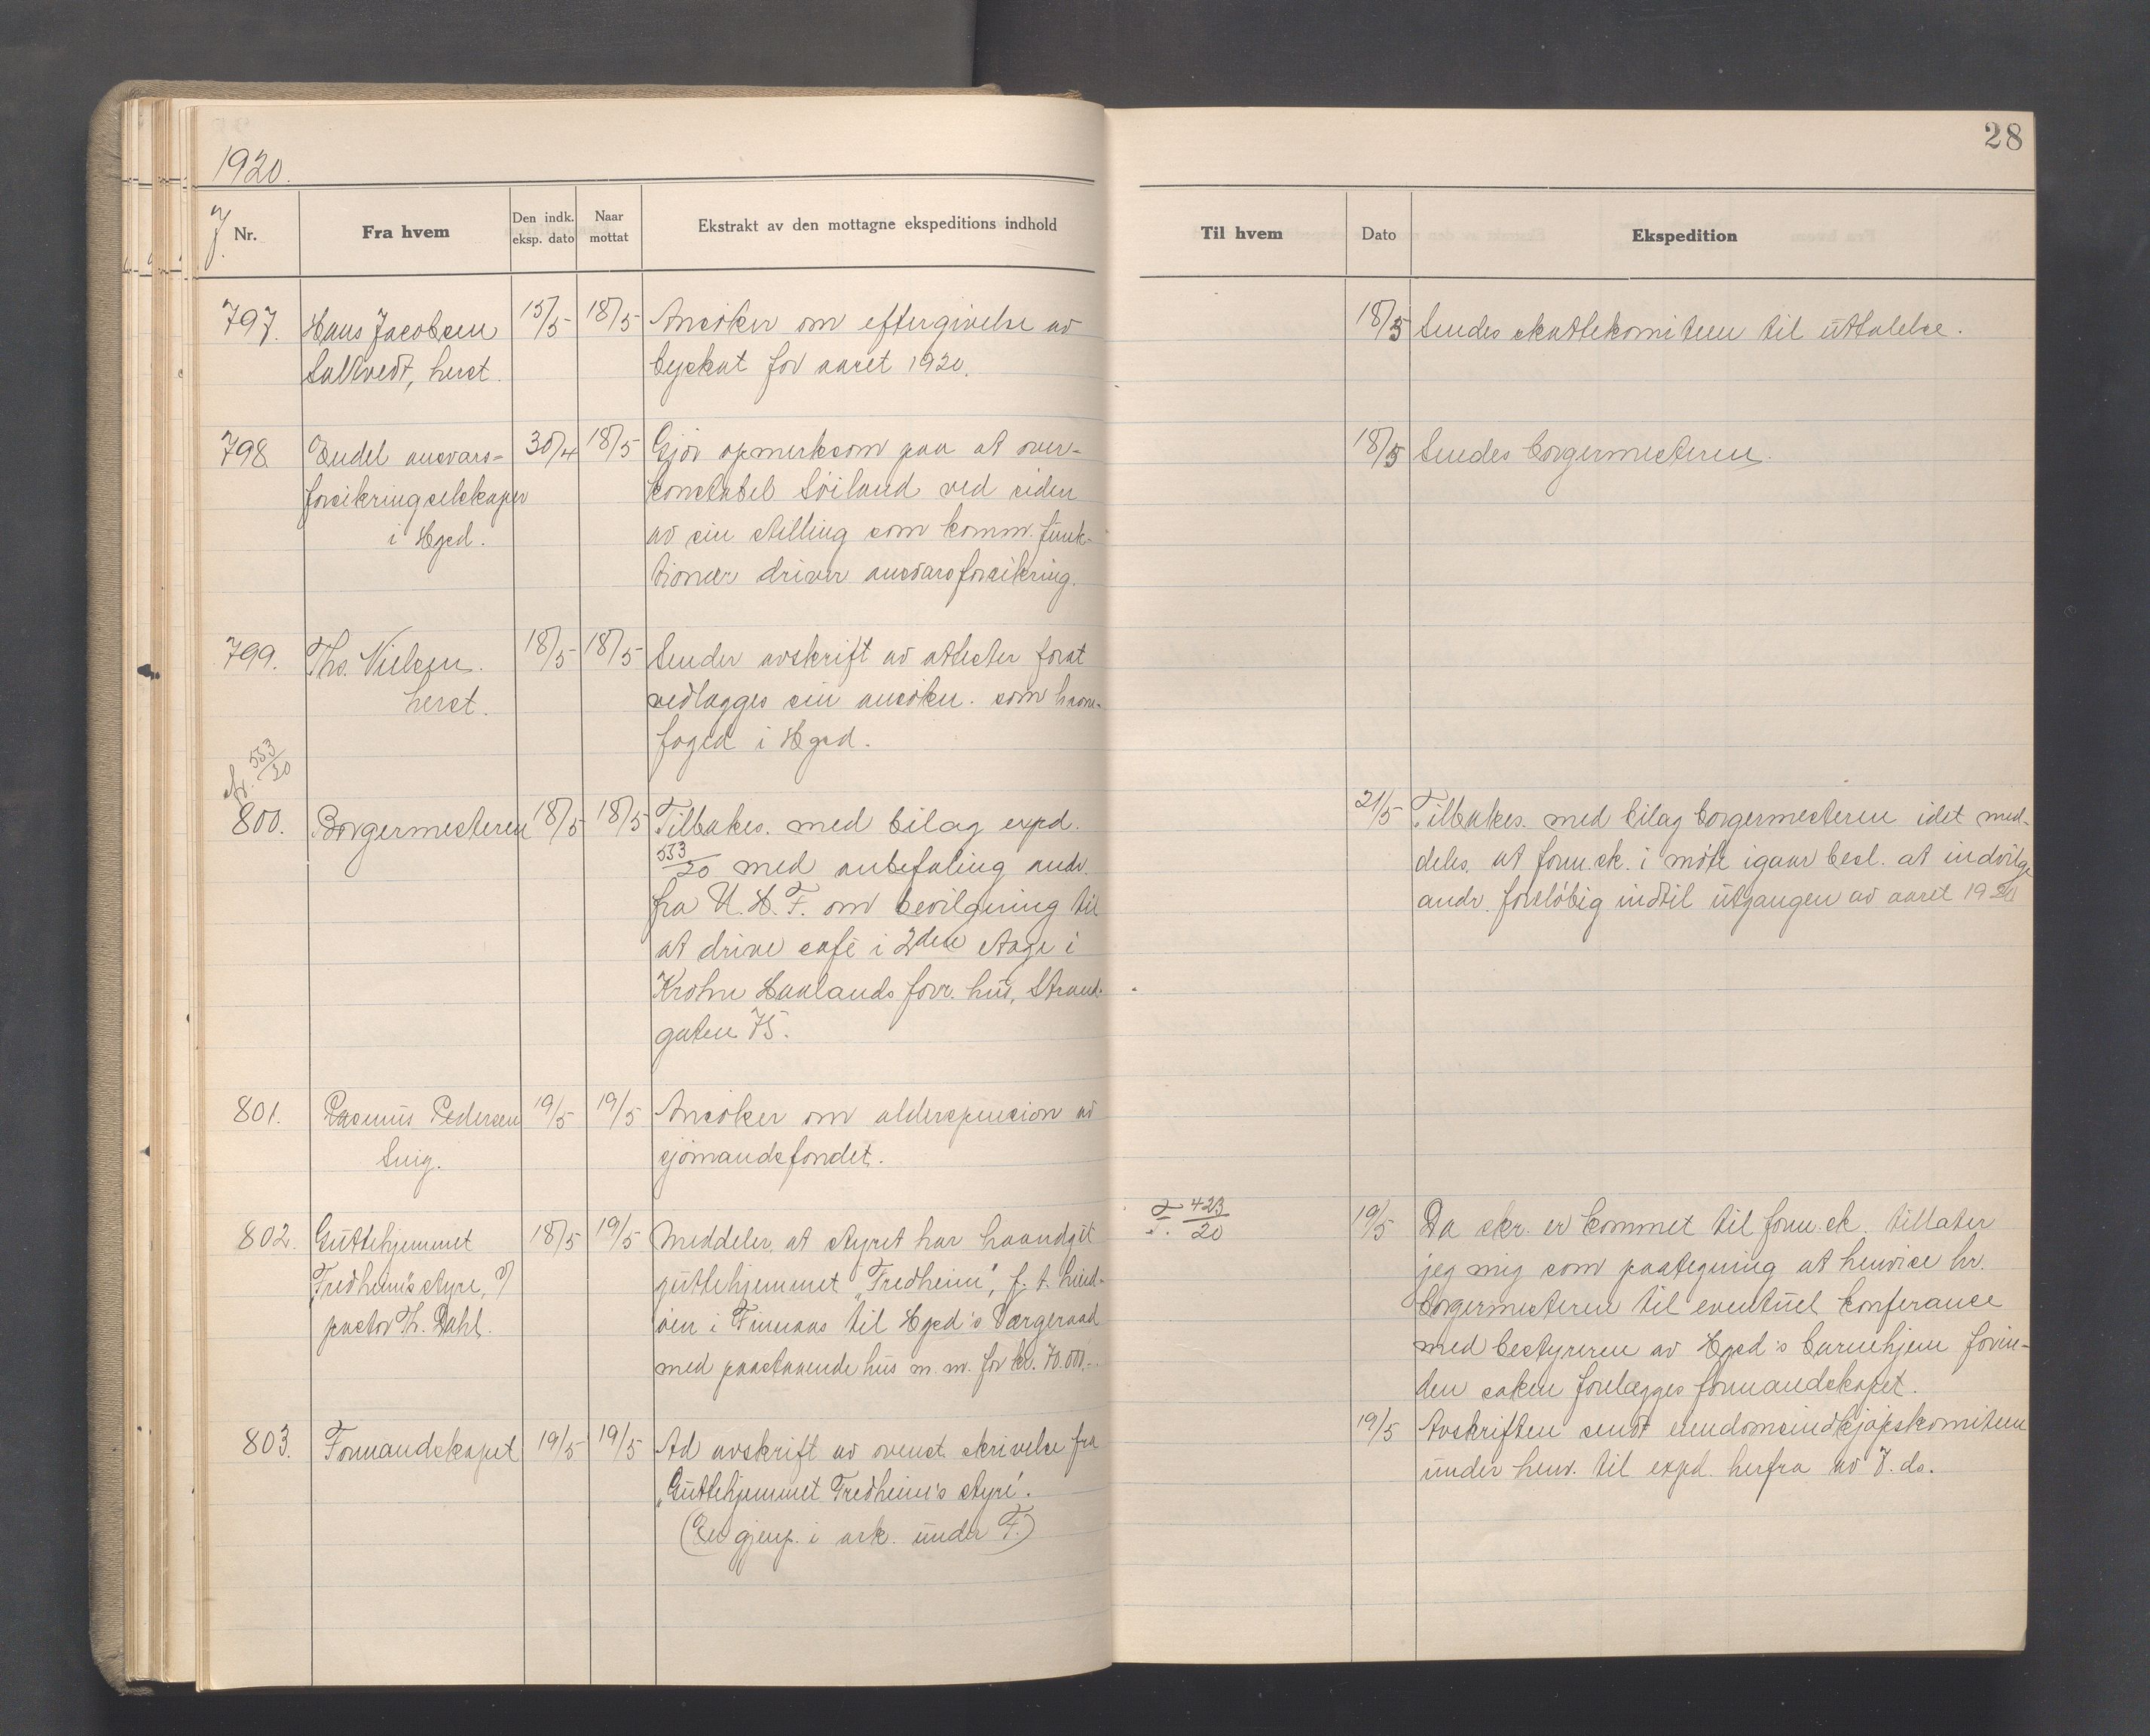 28
1920.
J. Nr.
Fra hvem
Den indk. eksp. dato
Naar mottat
Ekstrakt av den mottagne ekspeditions indhold
Til hvem
Dato
Ekspedition
797. Hans Jacobsen 15/5 18/5 Ansöker om eftergivelse av
Saltvedt, herst. byskat for aaret 1920.
18/5 Sendes skattekomiteen til uttalelse.
798 Endel ansvars- 30/4 18/5 Gjör opmerksom paa at over-
forsikringselskaper konstabel Söiland ved siden
i Hgsd. av sin stilling som komm. funk-
tionær driver ansvarsforsikring.
18/5 Sendes borgermesteren.
799. Ths. Nielsen. 18/5 18/5 Sender avskrift av attester forat
herst. vedlægges sin ansökn. som havne-
foged i Hgsd.
cfr. 553/20
800. Borgermesteren 18/5 18/5 Tilbakes. med bilag expd.
553/20 med anbefaling andr.
fra U. H. F. om bevilgning til
at drive café i 2den etage i
Krohn Haalands forr. hus, Strand-
gaten 75.
21/5 Tilbakes. med bilag borgermesteren idet med-
deles, at form.sk. i möte igaar besl. at indvilge
andr. foreløbig indtil utgangen av aaret 1920
801. Rasmus Pedersen 19/5 19/5 Ansöker om alderspension av
Snig. sjömandsfondet.
802. Guttehjemmet 18/5 19/5 Meddeler, at styret har haandgit
"Fredheim's styre, v/ guttehjemmet "Fredheim", f. t. Lind-
pastor Th. Dahl. öen i Finnaas til Hgsd's Værgeraad
med paastaaende hus m. m. for kr. 70.000.-
423/20
19/5 Da skr. er kommet til form.sk. tillater
jeg mig som paategning at henvise hr.
borgermesteren til eventuel konferanse
med bestyreren av Hgsd's barnehjem forin-
den saken forelægges formandskapet.
803. Formandskapet 19/5 19/5 Ad avskrift av ovenst. skrivelse fra
"Guttehjemmet Fredheim's styre".
(En gjenp. i ark. under F.)
19/5 Avskriften sendt eiendomsindkjöpskomiteen
under henv. til expd. herfra av 7. ds.